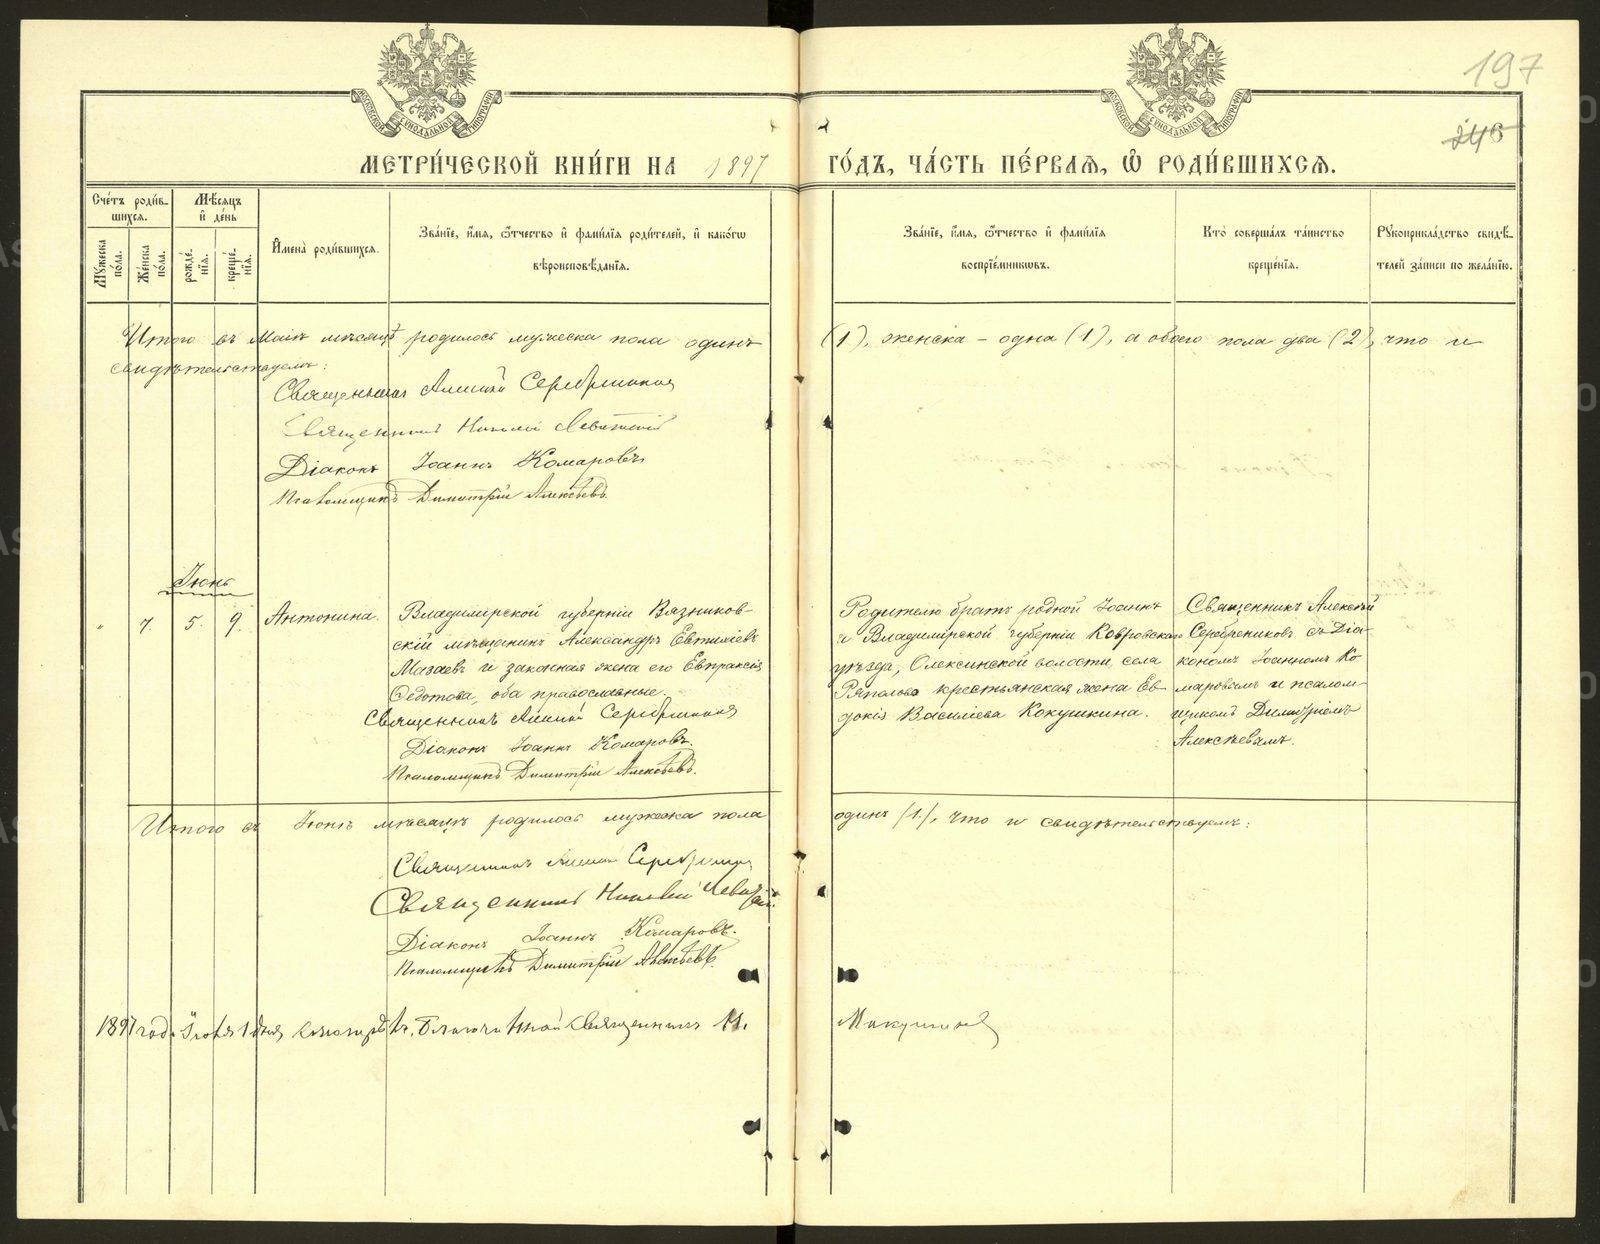 197
246
МОСКОВСКОЙ СѴНОДАЛЬНОЙ ТИПОГРАФІИ
МОСКОВСКОЙ СѴНОДАЛЬНОЙ ТИПОГРАФІИ
МЕТРИ́ЧЕСКОЙ КНИ́ГИ НА 1897 ГО́ДЪ, ЧА́СТЬ ПЕ́РВАѦ, Ѡ҆ РОДИ́ВШИХСѦ.
Сче́тъ роди́в-
шихсѧ.
Мꙋжеска по́ла.
Же́нска по́ла.
Мѣ́сѧцъ
и҆ де́нь
рожде́-
нїѧ.
креще́-
нїѧ.
И҆мена̀ роди́вшихсѧ.
Зва́нїе, и҆́мѧ, ѻ҆́тчество и҆ фами́лїѧ роди́телей, и҆ како́гѡ
вѣроисповѣ́данїѧ.
Зва́нїе, и҆́мѧ, ѻ҆́тчество и҆ фами́лїѧ
воспрїе́мникѡвъ.
Кто̀ соверша́лъ та́инство
креще́нїѧ.
Рꙋкоприкла́дство свидѣ́-
телей за́писи по жела́нїю.
Итого въ Маѣ мѣсяцѣ родилось мужеска пола одинъ (1), женска – одна (1), а обоего пола два (2), что и
свидѣтельствуемъ:
Священникъ Алексій Серебреников
Священникъ Николай Левитскій
Діаконъ Іоаннъ Комаровъ
Псаломщикъ Димитрій Алексѣевъ.
Іюнь
" 7. 5. 9. Антонина.
Владимірской губерніи Вязников-
скій мѣщанинъ Александръ Евтихіевъ
Мазаевъ и законная жена его Евпраксія
Федотова, оба православные.
Священникъ Алексій Серебреников
Діаконъ Іоаннъ Комаровъ.
Псаломщикъ Димитрій Алексѣевъ.
Родителю братъ родной Іоаннъ
и Владимірской губерніи Ковровскаго
уѣзда, Олексинской волости, села
Ряполова крестьянская жена Ев-
докія Василіева Кокушкина.
Священникъ Алексій
Серебрениковъ съ Діа-
кономъ Іоанномъ Ко-
маровымъ и псалом-
щикомъ Димитріемъ
Алексѣевымъ.
Итого въ Іюнѣ мѣсяцѣ родилось мужеска пола одинъ (1), что и свидѣтельствуемъ:
Священникъ Алексій Серебреников
Священникъ Николай Левитскій.
Діаконъ Іоаннъ Комаровъ.
Псаломщикъ Димитрій Алексѣевъ.
1897 года дня Благочинный Священникъ